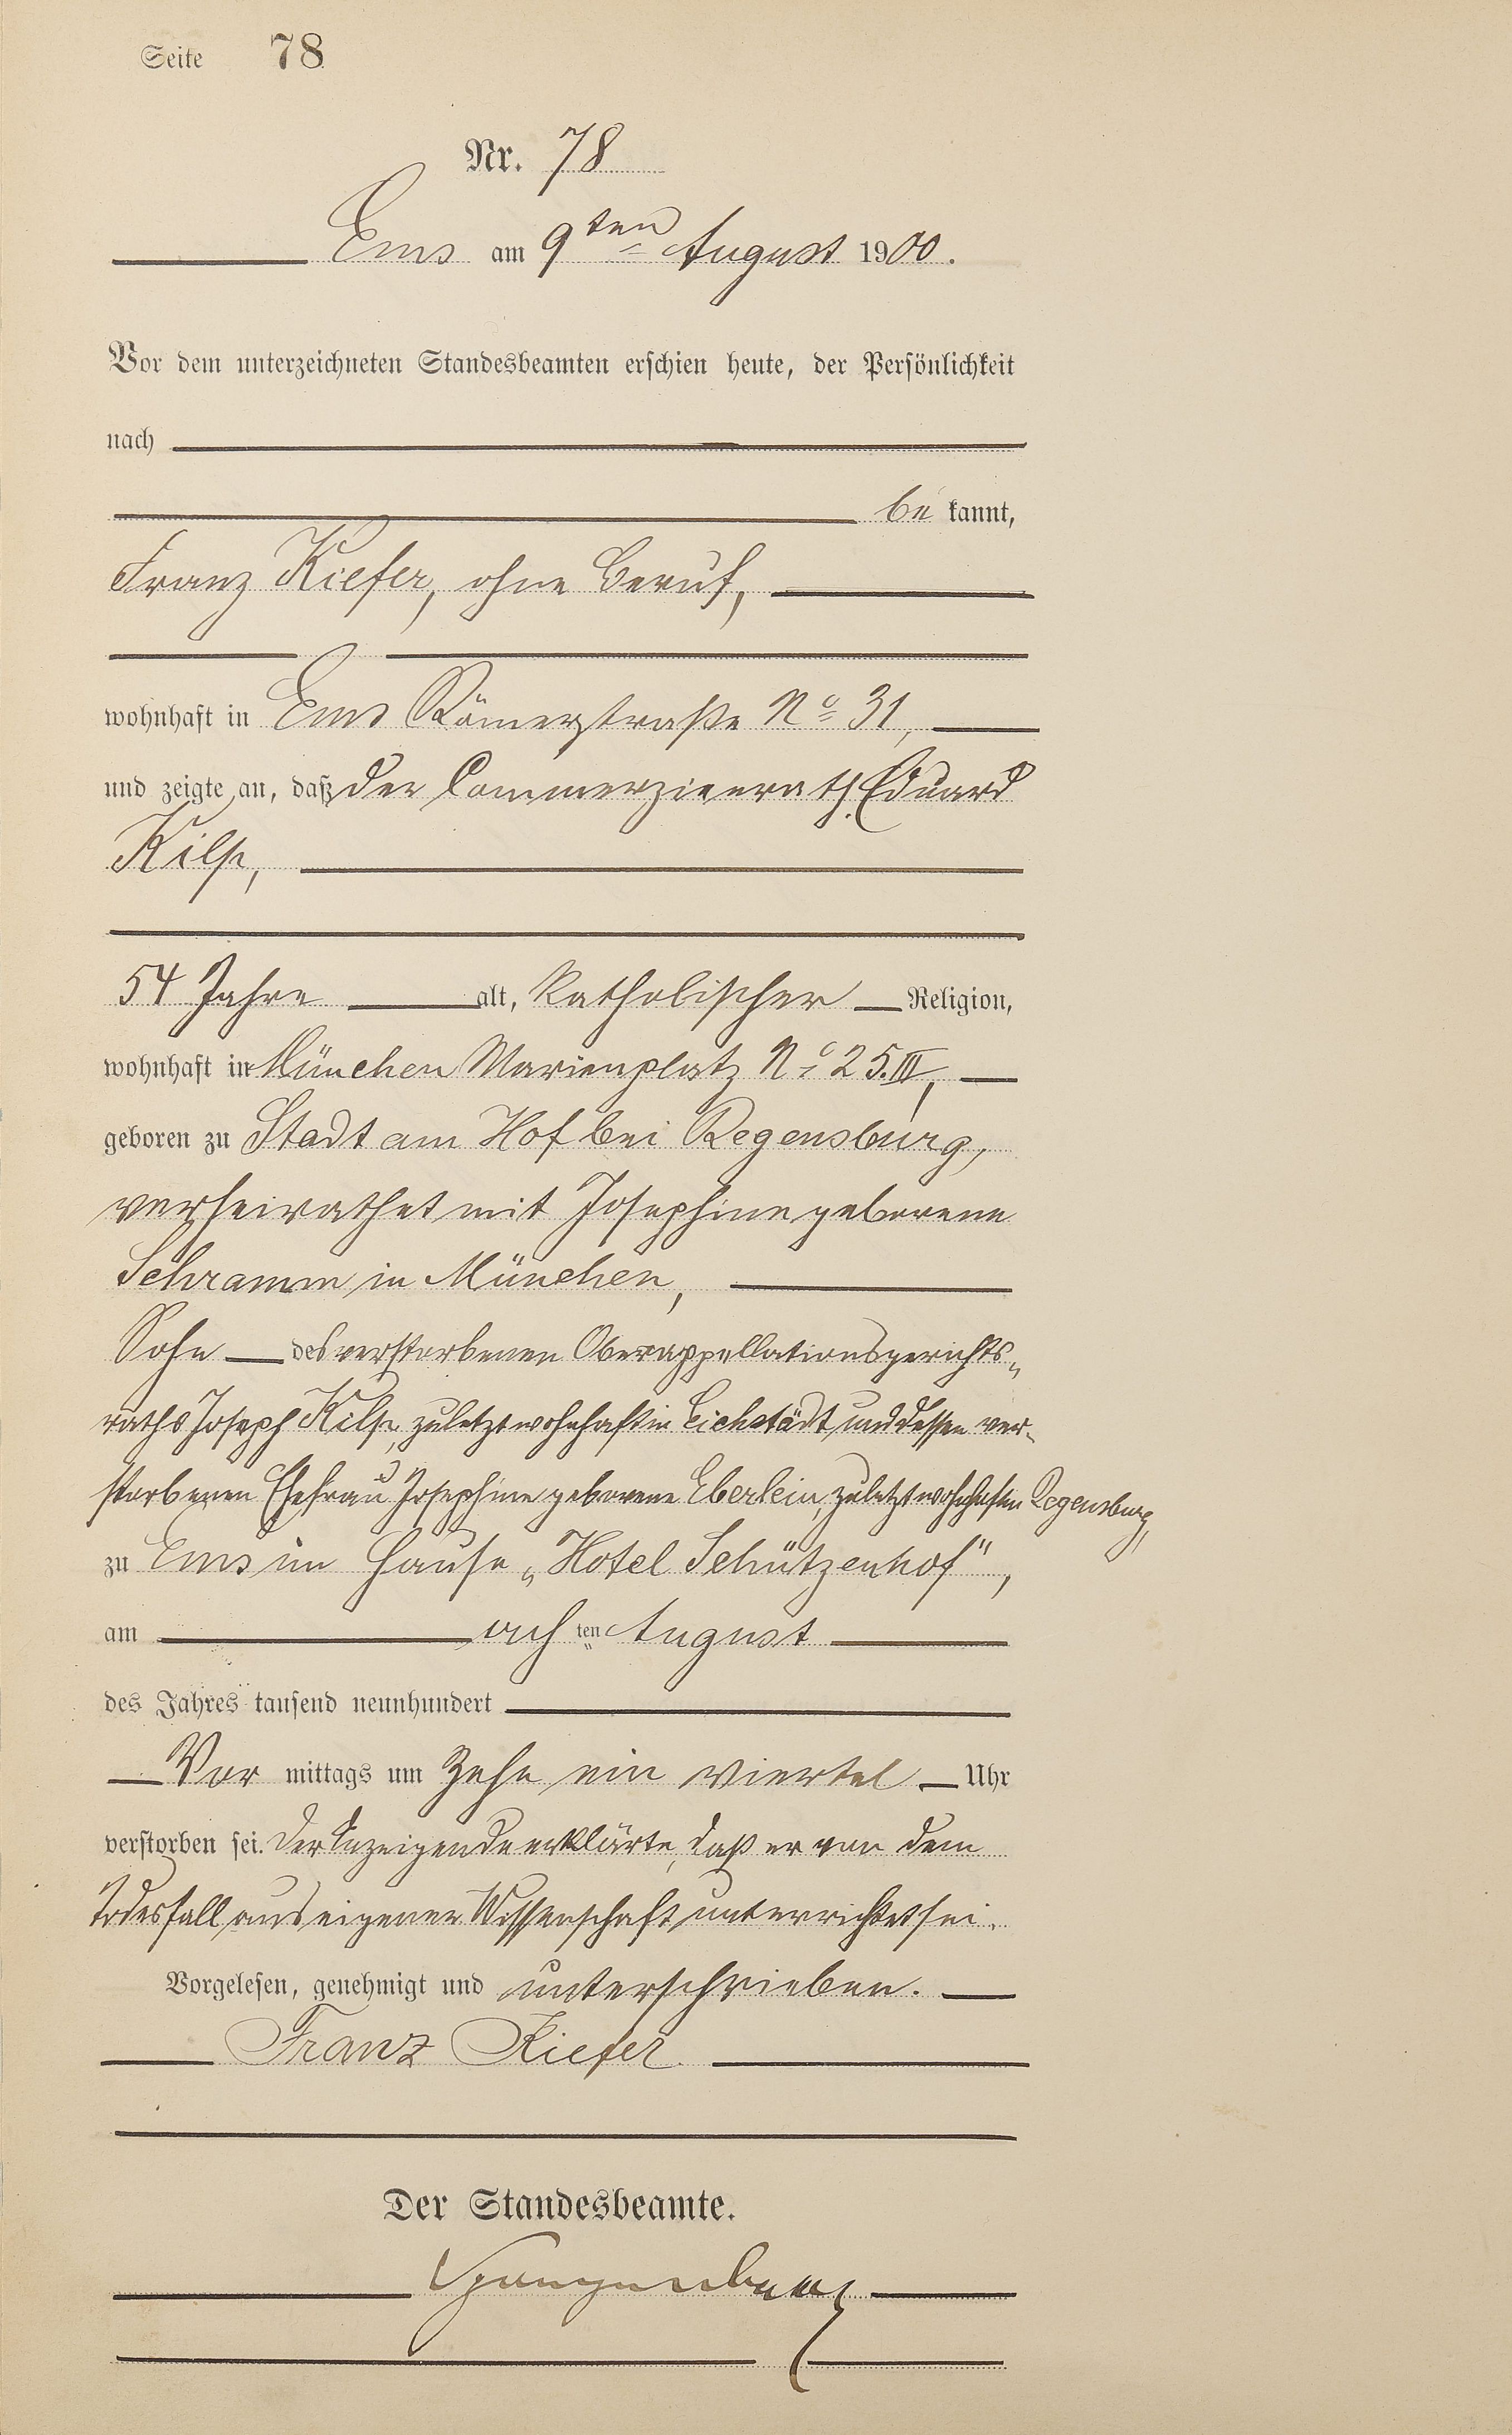 Seite 78
Nr. 78
Ems am 9ten August 1900.
Vor dem unterzeichneten Standesbeamten erschien heute, der Persönlichkeit
nach
be kannt,
Franz Kiefer, ohne Beruf,
wohnhaft in Ems Römerstraße No 31,
und zeigte an, daß der Commerzienrath Eduard
Kilp,
54 Jahre alt, katholischer Religion,
wohnhaft in München Marienplatz No 25.III,
geboren zu Stadt am Hof bei Regensburg,
verheirathet mit Josephine geborene
Schramm in München,
Sohn des verstorbenen Oberappellationsgerichts„
raths Joseph Kilp, zuletzt wohnhaft in Eichstädt und dessen ver-
storbenen Ehefrau Josephine geborene Eberlein, zuletzt wohnhaft in Regensburg,
zu Ems im Hause „Hotel Schützenhof",
am achten August
des Jahres tausend neunhundert
Vor mittags um Zehn ein viertel Uhr
verstorben sei. Der Anzeigende erklärte, daß er von dem
Todesfall aus eigener Wissenschaft unterrichtet sei.
Vorgelesen, genehmigt und unterschrieben.
Franz Kiefer.
Der Standesbeamte.